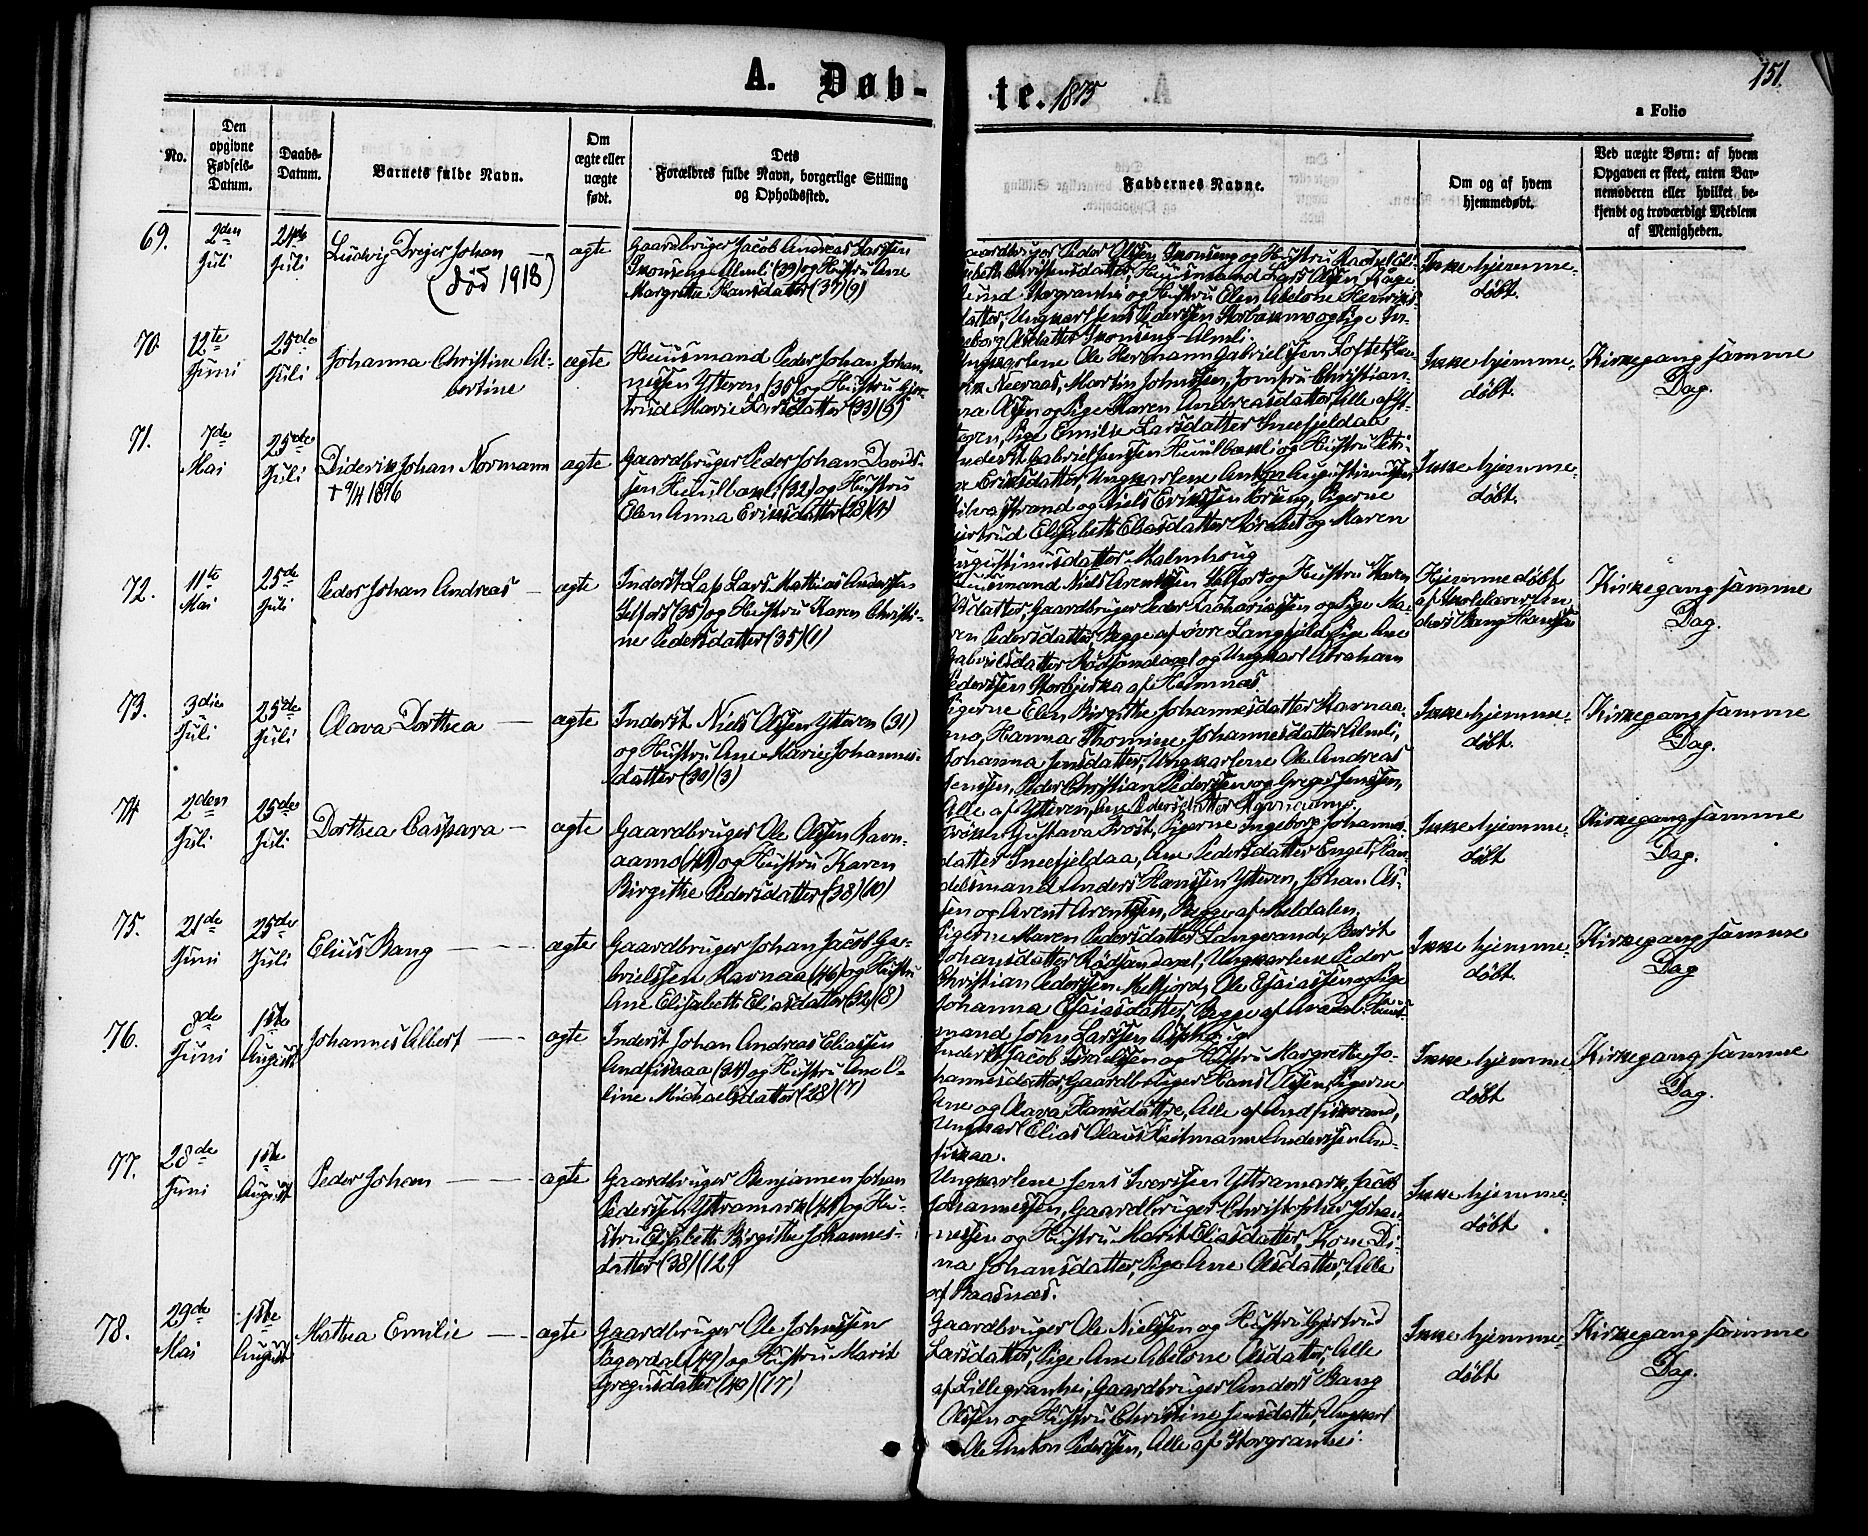 A. Døb-
te. 1875
151.
a Folio
No.
Den
opgivne
Fødsels-
Datum.
Daabs-
Datum.
Barnets fulde Navn.
Om
ægte eller
uægte
født.
Dets
Forældres fulde Navn, borgerlige Stilling
og Opholdssted.
Faddernes Navne.
Om og af hvem
hjemmedøbt.
Ved uægte Børn: af hvem
Opgaven er skeet, enten Bar-
nemoderen eller hvilket be-
kjendt og troværdigt Medlem
af Menigheden.
69.
2den
Juli
24de
Juli
Ludvig Dreyer Johan
(død 1918)
ægte
Gaardbruger Jacob Andreas Larssen
Almli (39) og Hustru Ane
Margrethe Hansdatter (37) (9)
aardbruger Peder Olssen og Hustru Rachel Eli-
sabeth Christensdatter, Huusmand Lars Olssen
Storgranhei og Hustru Elen Abelone Henriks-
datter, Ungkarl Jens Pederssen og Pige In-
geborg Olsdatter Almli.
Ikke hjemme-
døbt.
70.
12te
Juni
25de
Juli
Johanna Christine Al-
bertine
ægte
Huusmand Peder Johan Johan-
nessen Ytteren (35) og Hustru Gjer-
trud Marie Larsdatter (33) (5)
Ungkarlene Ole Hermann Gabrielssen
Martin Johnssen, Jomfru Christian-
na Olsen og Pige Maren Andreasdatter, Alle af Yt-
teren, Pige Emilie Larsdatter Sneefjeldaa
Ikke hjemme-
døbt.
Kirkegang samme
Dag.
71.
7de
Mai
25de
Juli
Diderik Johan Normann
† 9/4 1896
ægte
Gaardbruger Peder Johan Davids-
sen (32) og Hustru
Olen Anna Eriksdatter (28) (4)
Inderst Gabriel Jenssen og Hustru
Eriksdatter, Ungkarlene Anton Augustinussen
Silvastrand og Niels Erikssen Pigerne
Gjertrud Elisabeth Eliasdatter og Maren
Augustinusdatter Malmhoug
Ikke hjemme-
døbt.
72.
11te
Mai
25de
Juli
Peder Johan Andreas
ægte
Inderst Lap Lars Mathias Anderssen
Selfors (35) og Hustru Karen Christi-
ne Pedersdatter (35) (1)
Huusmand Niels Arentssen Selfors og Hustru Karen
Olsdatter, Gaardbruger Peder Zachariassen og Pige Ma-
ren Pedersdatter Begge af øvre Langfjeld, Pige Ane
Gabrielsdatter Rødsandaxel og Ungkarl Abraham
Pederssen Storbjerka af Hemnæs.
Hjemmedøbt
af Skolelærer An-
ders Bang Hanssen
Kirkegang samme
Dag.
73.
3die
Juli
25de
Juli
Olava Dorthea
ægte
Inderst Niels Olssen Ytteren (31)
og Hustru Ane Marie Johannes-
datter (30) (3)
Pigerne Elen Birgithe Johannesdatter Ravnaa-
mo, Hanna Thomine Johannesdatter Almli,
Johanna Jensdatter, Ungkarlene Ole Andreas
Jenssen, Peder Christian Pederssen og Greger Jenssen,
Alle af Ytteren, Ane Pedersdatter Ravnaamo.
Ikke hjemme-
døbt.
Kirkegang samme
Dag.
74
2den
Juli
25de
Juli
Dorthea Caspara
ægte
Gaardbruger Ole Olssen Ravn-
aamo (44) og Hustru Karen
Birgithe Pedersdatter (38) (10)
Frøken Gustava Frost, Pigerne Ingeborg Johannes-
datter Sneefjeldaa, Ane Pedersdatter Enget, Lan-
delsmand Anders Hanssen Ytteren, Johan Ols-
sen og Arent Arentssen, Begge af Meldalen.
Ikke hjemme-
døbt
Kirkegang samme
Dag.
75.
21de
Juni
25de
Juli
Elius Bang
ægte
Gaardbruger Johan Jacob Ga-
brielssen Ravnaa (46) og Hustru
Ane Elisabeth Eliasdatter (32) (8)
Pigerne Maren Pedersdatter Langvand, Berit
Johansdatter Rødsandaxel, Ungkarlene Peder
Christian Pederssen Melfjord, Ole Esaiassen og Pige
Johanna Esaiasdatter, Begge af
mand John Larssen
Ikke hjemme-
døbt
Kirkegang samme
Dag
76.
8de
Juni
1ste
August
Johannes Albert
ægte
Inderst Johan Andreas Eliassen
Andfiskaa (34) og Hustru Ane O-
line Michaelsdatter (28) (7)
Inderst Jacob Israelssen og Hustru Margrethe Jo-
hannesdatter, Gaardbruger Hans Olssen, Pigerne
Ane og Olava Hansdattre, Alle af Andfiskvand,
Ungkarl Elias Olaus Heitmann Anderssen And-
fiskaa.
Ikke hjemme
døbt
Kirkegang samme
Dag.
77.
28de
Juni
1ste
August
Peder Johan
ægte
Gaardbruger Benjamen Johan
Pederssen Yttramark (44) og Hu-
stru Elisabeth Birgithe Johannes-
datter (38) (12)
Ungkarlene Jens Iverssen Yttramark, Jacob
Johannessen, Gaardbruger Christopher Johan-
nessen og Hustru Marit Eliasdatter, Kone Di-
na Johansdatter, Pige Ane Olsdatter, Alle
af Baasnæs.
Ikke hjemme-
døbt
78.
29de
Mai
1ste
August
Mathea Emilie
ægte
Gaardbruger Ole Johnssen
Bogerdal (49) og Hustru Marit
Gregusdatter (40) (17)
Gaardbruger Ole Nielssen og Hustru Gjertrud
Larsdatter, Pige Ane Abelone Olsdatter, Alle
af Lillegranhei, Gaardbruger Anders Bang
Olssen og Hustru Christine Jensdatter, Ungkarl
Ole Anton Pederssen, Alle af Storgranhei.
Ikke hjemme-
døbt
Kirkegang samme
Dag.